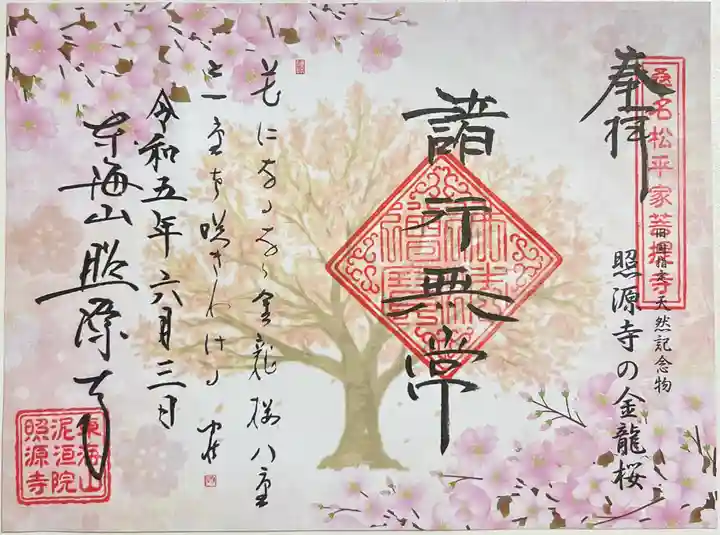 奉拝
桑名松平家菩提寺
天然記念物
照源寺の金龍桜
諸行無常
花になる
金龍桜八重
一重
咲きわける
令和五年六月三日
東海山照源寺
東海山
泥洹院
照源寺